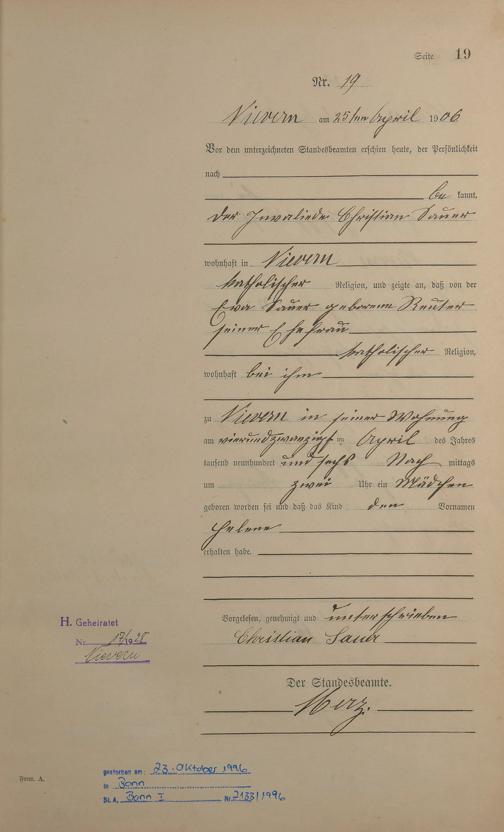 Seite 19
Nr. 19
Nievern am 25ten April 1906
Vor dem unterzeichneten Standesbeamten erschien heute, der Persönlichkeit
nach
be kannt,
der Invaliede Christian Sauer
wohnhaft in Nievern
katholischer Religion, und zeigte an, daß von der
Eva Sauer geborene Reuter
seiner Ehefrau
katholischer Religion,
wohnhaft bei ihm
zu Nievern in seiner Wohnung
am vierundzwanzigsten April des Jahres
tausend neunhundert und sechs Nach mittags
um zwei Uhr ein Mädchen
geboren worden sei und daß das Kind den Vornamen
Helene
erhalten habe.
Vorgelesen, genehmigt und unterschrieben
Christian Sauer
H. Geheiratet
Nr. 1928
Nievern
Der Standesbeamte.
Merz.
gestorben am: 23. Oktober 1996
in Bonn
St.A. Bonn I Nr. 2133/1996
Form. A.